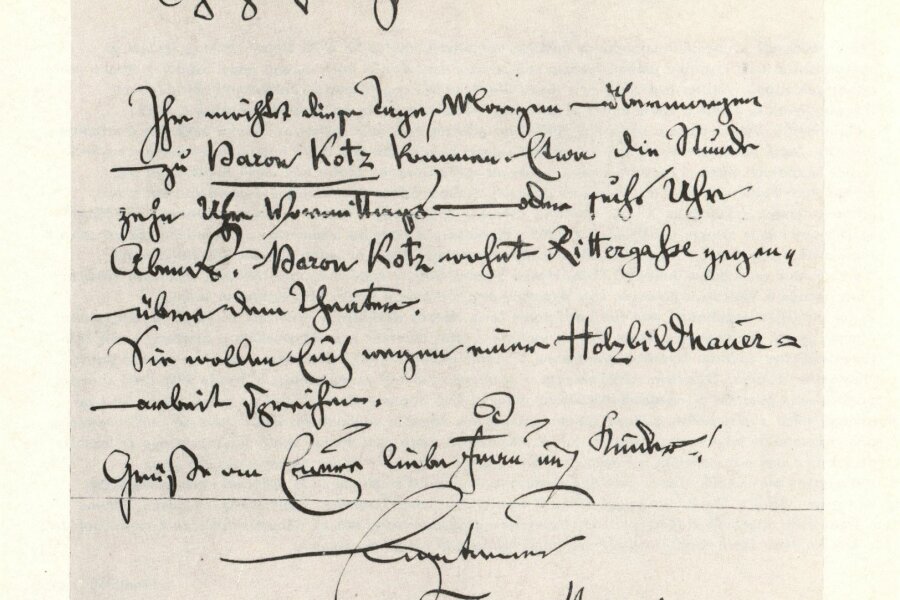 Ihr möchtet diese Tage, Morgen – übermorgen
– zu Baron Kotz kommen. Etwa die Stunde
zehn Uhr Vormittags – oder sechs Uhr
Abends. Baron Kotz wohnt Rittergasse gegen„
– über dem Theater.
Sie wollen Euch wegen einer Holzbildhauer=
– arbeit sprechen.
Grüße an Euere liebe Frau und Kinder!